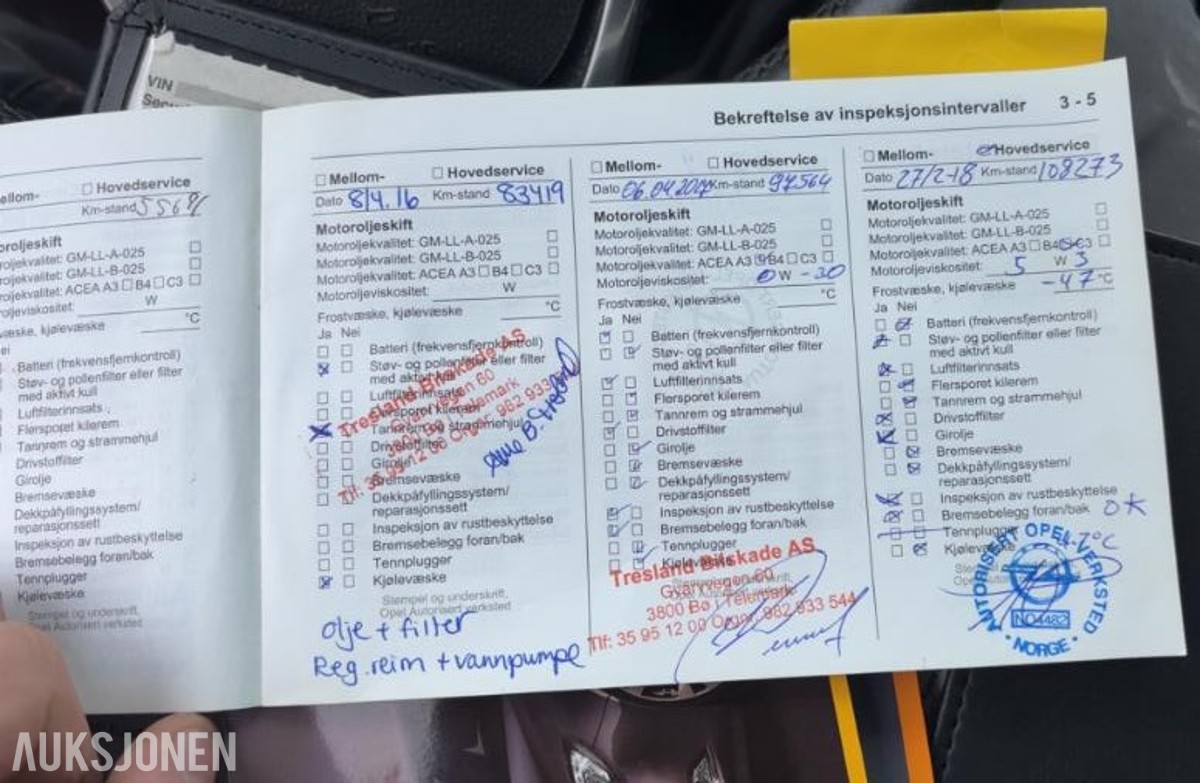 VIN
Bekreftelse av inspeksjonsintervaller 3 - 5
ellom- ☐ Hovedservice
Km-stand
oroljeskift
roljekvalitet: GM-LL-A-025 ☐
roljekvalitet: GM-LL-B-025 ☐
oljekvalitet: ACEA A3 ☐ B4 ☐ C3 ☐
roljeviskositet: W
væske, kjølevæske °C
ei
Batteri (frekvensfjernkontroll)
Støv- og pollenfilter eller filter
med aktivt kull
Luftfilterinnsats
Flersporet kilerem
Tannrem og strammehjul
Drivstoffilter
Girolje
Bremsevæske
Dekkpåfyllingssystem/
reparasjonssett
Inspeksjon av rustbeskyttelse
Bremsebelegg foran/bak
Tennplugger
Kjølevæske
Stempel og underskrift,
Opel Autorisert verksted
☐ Mellom- ☐ Hovedservice
Dato 8/4.16 Km-stand 83419
Motoroljeskift
Motoroljekvalitet: GM-LL-A-025 ☐
Motoroljekvalitet: GM-LL-B-025 ☐
Motoroljekvalitet: ACEA A3 ☐ B4 ☐ C3 ☐
Motoroljeviskositet: W
Frostvæske, kjølevæske °C
Ja Nei
Batteri (frekvensfjernkontroll)
Støv- og pollenfilter eller filter
med aktivt kull
Luftfilterinnsats
Flersporet kilerem
Tannrem og strammehjul
Drivstoffilter
Girolje
Bremsevæske
Dekkpåfyllingssystem/
reparasjonssett
Inspeksjon av rustbeskyttelse
Bremsebelegg foran/bak
Tennplugger
Kjølevæske
Stempel og underskrift,
Opel Autorisert verksted
Tresland Bilskade AS
Gvarvvegen 60
Tlf: 35 95 12 00
olje + filter
Reg.reim + vannpumpe
☐ Mellom- ☐ Hovedservice
Dato 06.04.2017 Km-stand 97564
Motoroljeskift
Motoroljekvalitet: GM-LL-A-025 ☐
Motoroljekvalitet: GM-LL-B-025 ☐
Motoroljekvalitet: ACEA A3 B4 ☐ C3 ☐
Motoroljeviskositet: 0 W - 30
Frostvæske, kjølevæske °C
Ja Nei
Batteri (frekvensfjernkontroll)
Støv- og pollenfilter eller filter
med aktivt kull
Luftfilterinnsats
Flersporet kilerem
Tannrem og strammehjul
Drivstoffilter
Girolje
Bremsevæske
Dekkpåfyllingssystem/
reparasjonssett
Inspeksjon av rustbeskyttelse
Bremsebelegg foran/bak
Tennplugger
Kjølevæske
Tresland Bilskade AS
Gvarvvegen 60
3800 Bø i Telemark
Tlf: 35 95 12 00 Orgnr. 982 933 544
☐ Mellom- Hovedservice
Dato 27/2-18 Km-stand 108273
Motoroljeskift
Motoroljekvalitet: GM-LL-A-025 ☐
Motoroljekvalitet: GM-LL-B-025 ☐
Motoroljekvalitet: ACEA A3 ☐ B4 C3 ☐
Motoroljeviskositet: 5 W 3
Frostvæske, kjølevæske -47 °C
Ja Nei
Batteri (frekvensfjernkontroll)
Støv- og pollenfilter eller filter
med aktivt kull
Luftfilterinnsats
Flersporet kilerem
Tannrem og strammehjul
Drivstoffilter
Girolje
Bremsevæske
Dekkpåfyllingssystem/
reparasjonssett
Inspeksjon av rustbeskyttelse
Bremsebelegg foran/bak OK
Tennplugger
Kjølevæske
AUTORISERT OPEL-VERKSTED
NO4482
NORGE
AUKSJONEN